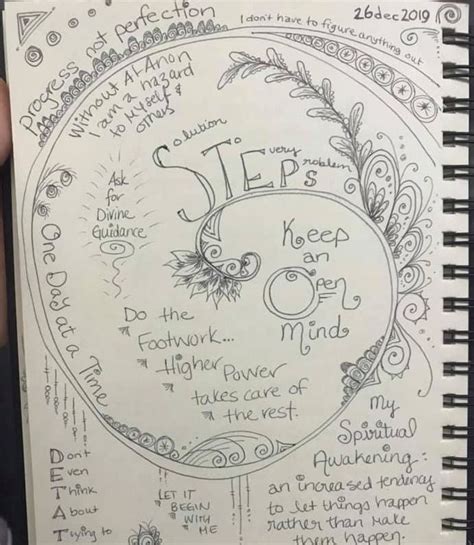 Progress not perfection
I don't have to figure anything out
26dec2019
Without Al-Anon
I am a hazard
to Myself &
others
Solution
To
every
Problem
STEPS
Ask
for
Divine
Guidance
Keep
an
Open
Mind
One Day at a Time
Do the
Footwork...
Higher Power
takes care of
the rest.
My
Spiritual
Awakening:
an increased tendency
to let things happen
rather than make
them happen.
Don't
Even
Think
About
Trying to
LET IT
BEGIN
WITH
ME